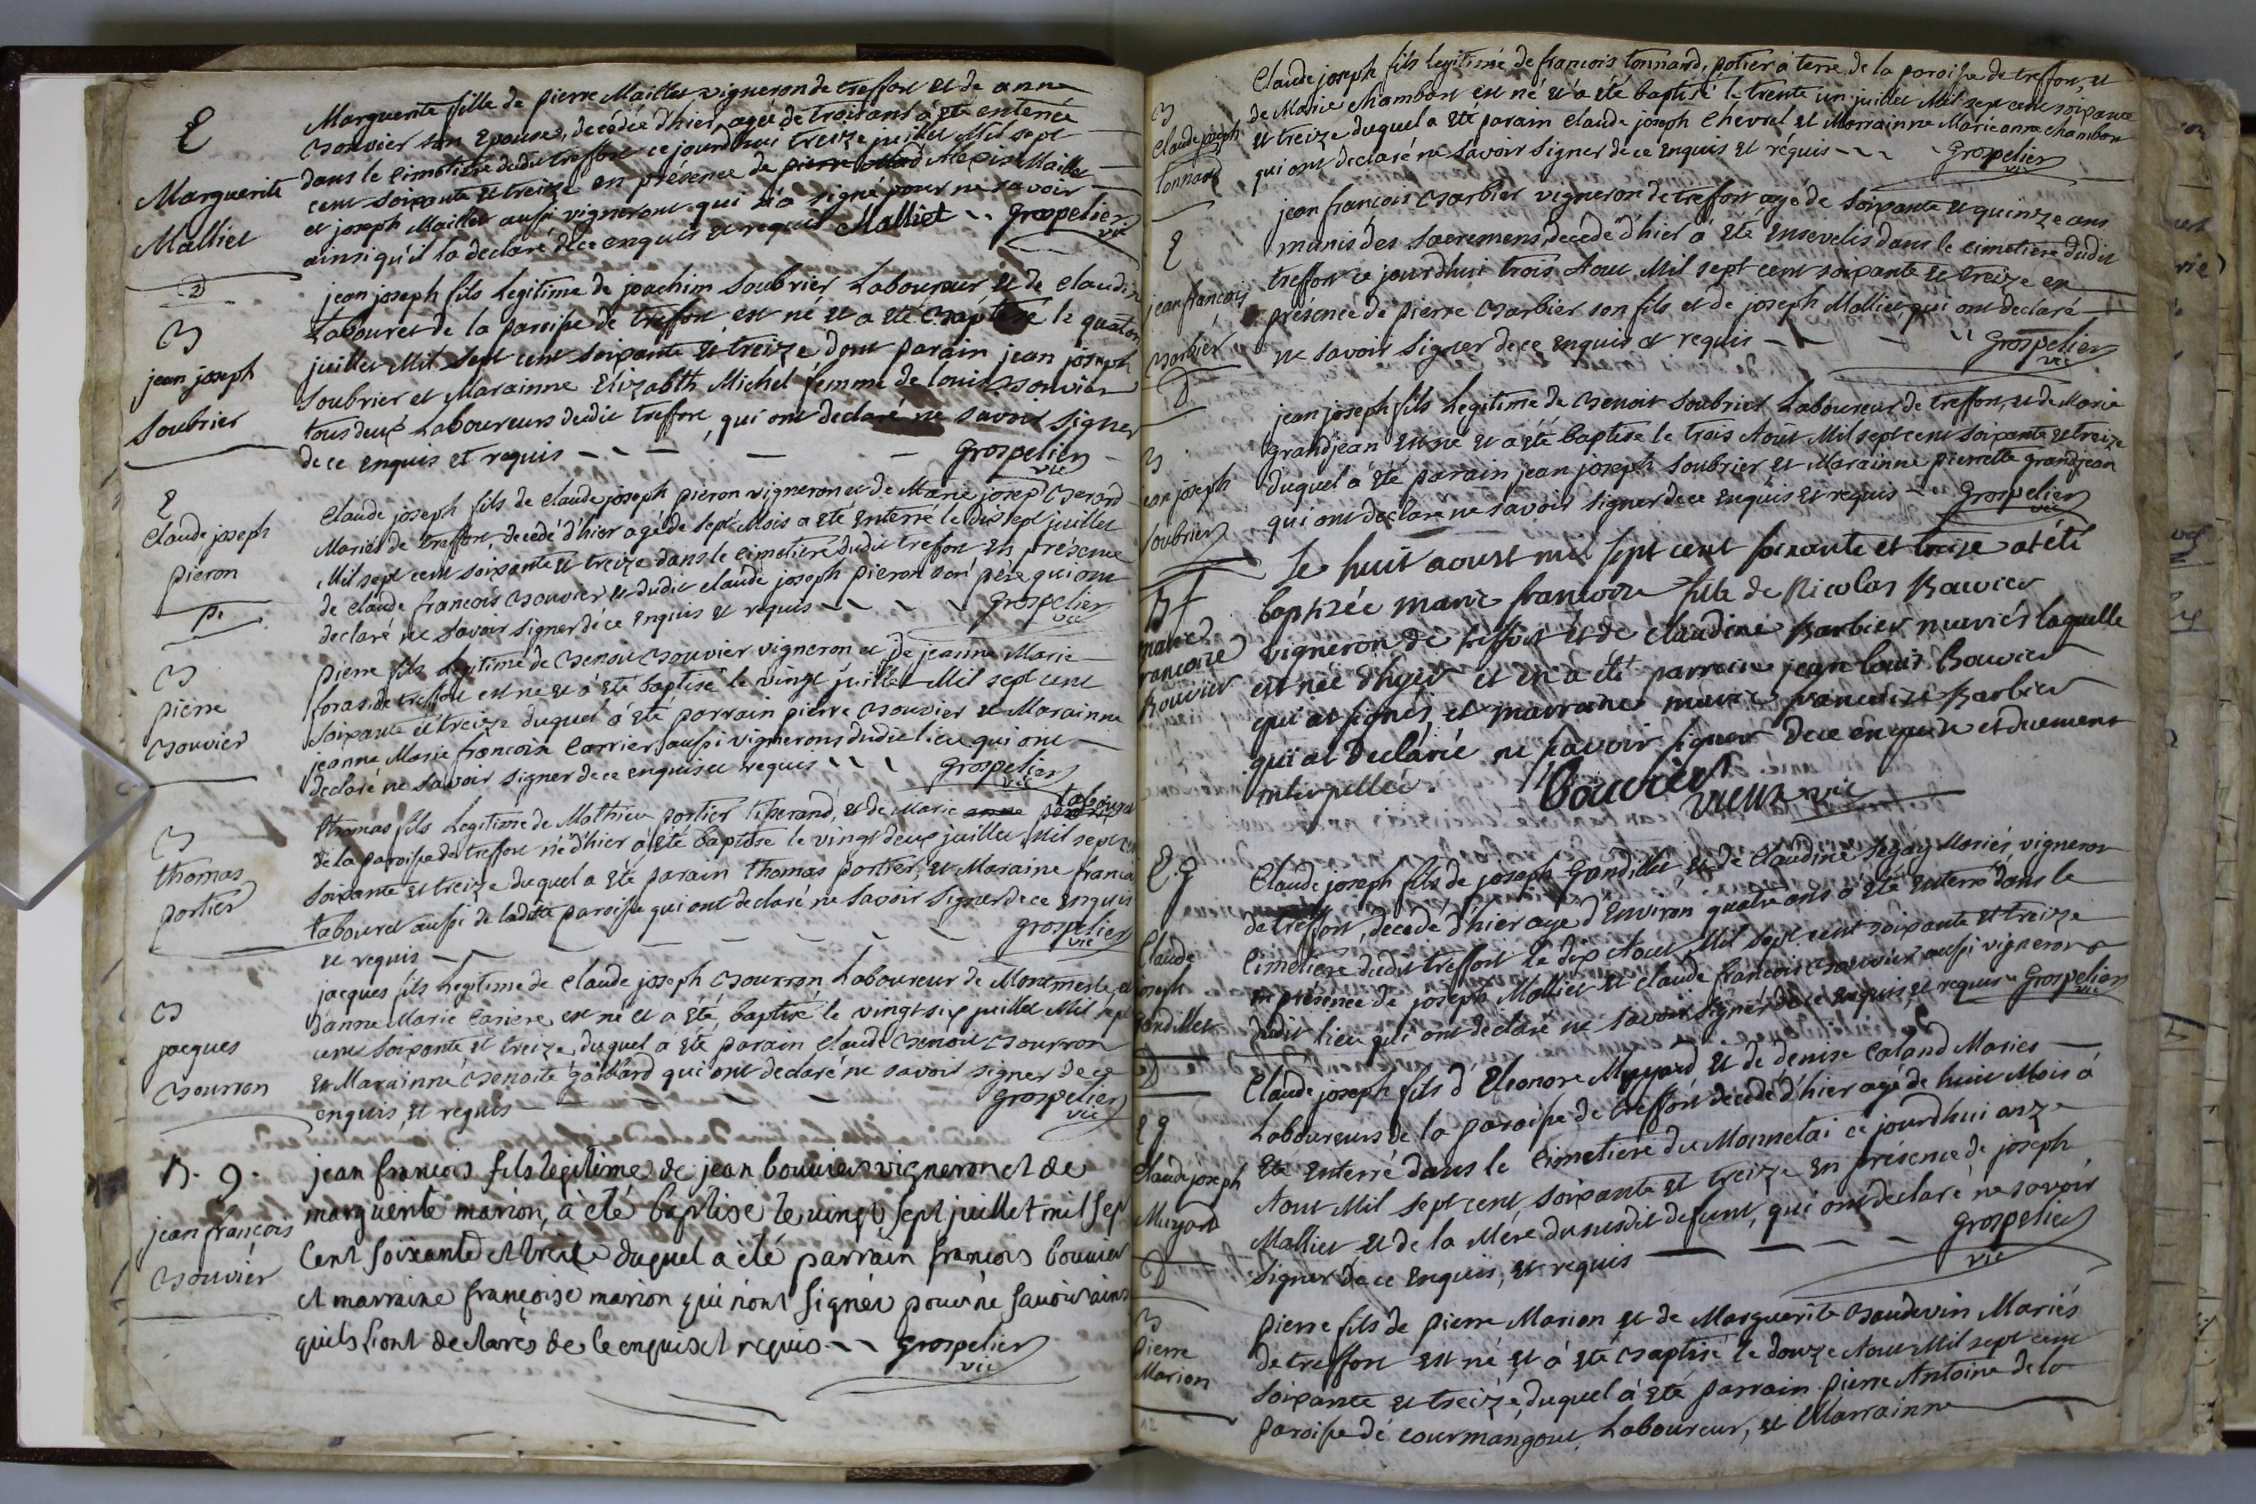 E
Marguerite
Malliet
D
Marguerite fille de pierre Maillet vigneron de treffort et de anne
Bouvier son Epouse, decedée d'hier, agée de trois ans à été enterrée
dans le cimetiere dudit treffort ce jourdhui treize juillet Mil sept
cent soixante et treize en présence de Alexis Maillet
et joseph Maillet aussi vignerons qui n'a signé pour ne savoir
ainsi qu'il l'a declaré de ce enquis et requis Malliet Grospelier
vic
B
jean joseph
Soubrier
jean joseph fils Legitime de joachim Soubrier Laboureur et de claudine
Labouret de la paroisse de treffort est né et a été Baptisé le quatorze
juillet Mil sept cent soixante et treize dont parain jean joseph
Soubrier et Marainne Elizabth Michel femme de louis Bouvier
tous deux Laboureurs dudit treffort, qui ont declaré ne savoir signer
de ce enquis et requis Grospelier
vic
E
Claude joseph
pieron
D.
Claude joseph fils de claude joseph pieron vigneron et de Marie joseph Berard
Mariés de treffort, decedé d'hier agé de sept Mois a été enterré le dix sept juillet
Mil sept cent soixante et treize dans le cimetiere dudit treffort en présence
de claude francois Bouvier et dudit claude joseph pieron son père qui ont
declaré ne savoir signer de ce enquis et requis Grospelier
vic
B
pierre
Bouvier
pierre fils legitime de Benoit Bouvier vigneron et de jeanne Marie
foras de treffort est né et a été baptisé le vingt juillet Mil sept cent
soixante et treize duquel a été parrain pierre Bouvier et Marainne
jeanne Marie francoise Carrier aussi vignerons dudit lieu qui ont
declaré ne savoir signer de ce enquis et requis Grospelier
vic
B
thomas
portier
thomas fils Legitime de Mathieu portier tisserand, et de Marie tabouret
de la paroisse de treffort né d'hier a été baptisé le vingt deux juillet Mil sept cent
soixante et treize duquel a été parain thomas portier, et Maraine francoise
tabouret aussi de ladite paroisse qui ont declaré ne savoir signer de ce enquis
et requis Grospelier
vic
B
jacques
Bourron
jacques fils Legitime de claude joseph Bourron Laboureur de Montmerle, et
d'anne Marie Cariere est né et a été baptisé le vingt six juillet Mil sept
cent soixante et treize, duquel a été parain claude Benoit Bourron
et Marainne Benoite gaillard qui ont declaré ne savoir signer de ce
enquis, et requis Grospelier
vic
B. g.
jean françois
Bouvier
jean francois fils legitime de jean bouvier vigneron et de
marguerite marion, à été baptise le vingt sept juillet mil sept
Cent soixante et treize duquel à été parrain francois bouvier
et marraine françoise marion qui n'ont signér pour ne savoir ainsi
quils l'ont declarés de ce enquis et requis Grospelier
vic
B
Claude joseph
tonnard
Claude joseph fils legitime de francois tonnard, potier à terre de la paroisse de treffort, et
de Marie chambon est né et a été baptisé le trente un juillet Mil sept cent soixante
et treize duquel a été parain claude joseph Chevrel et Marrainne Marie anne chambon
qui ont declaré ne savoir signer de ce enquis et requis Grospelier
vic
E
jean françois
Barbier
D
jean francois Barbier vigneron de treffort agé de soixante et quinze ans
munis des sacremens, decedé d'hier a été ensevelis dans le cimetiere dudit
treffort ce jourdhui trois Aout Mil sept cent soixante et treize en
présence de pierre Barbier son fils et de joseph Malliet qui ont declaré
ne savoir signer de ce enquis et requis Grospelier
vic
B
jean joseph
Soubrier
jean joseph fils Legitime de Benoit Soubrier Laboureur de treffort, et de Marie
grandjean est né et a été baptisé le trois Août Mil sept cent soixante et treize
duquel a été parain jean joseph Soubrier et Marainne pierrette grandjean
qui ont declaré ne savoir signer de ce enquis et requis Grospelier
vic
B f
marie
francoise
Bouvier
Le huit aoust mil sept cent soixante et treize at été
baptizée marie francoise fille de Nicolas Bouvier
vigneron de treffort et de claudine Barbier mariés laquelle
est née d'hyer et en a été parrain jean louis Bouvier
qui at signés, et marraine marie francoise Barbier
qui at declarée ne scavoir signer de ce enquise et duement
interpellée. Bouvier
vieux vic
E. g
Claude
joseph
gondillet
D
Claude joseph fils de joseph Gondillet et de Claudine Segay Mariés vigneron
de treffort, decedé d'hier agé d'Environ quatre ans a été Enterré dans le
cimetiere dudit treffort le dix Aout Mil sept cent soixante et treize
en présence de joseph Malliet et claude francois Bouvier aussi vigneron
dudit lieu qui ont declaré ne savoir signer de ce enquis et requis Grospelier
vic
E g
Claude joseph
Muyard
D
Claude joseph fils d'Eleonore Muyard et de denise Caland Mariés
Laboureurs de la paroisse de treffort decedé d'hier agé de huit Mois à
été Enterré dans le cimetiere du Monnetai ce jourdhui onze
Aout Mil sept cent soixante et treize en présence de joseph
Malliet et de la Mére du susdit defunt, qui ont declaré ne savoir
signer de ce enquis, et requis Grospelier
vic
B
pierre
Marion
pierre fils de pierre Marion et de Marguerite Baudevin Mariés
de treffort est né et a été Baptisé le douze Aout Mil sept cent
soixante et treize, duquel à été parrain pierre Antoine de la
paroisse de courmangoux Laboureur, et Marrainne
12